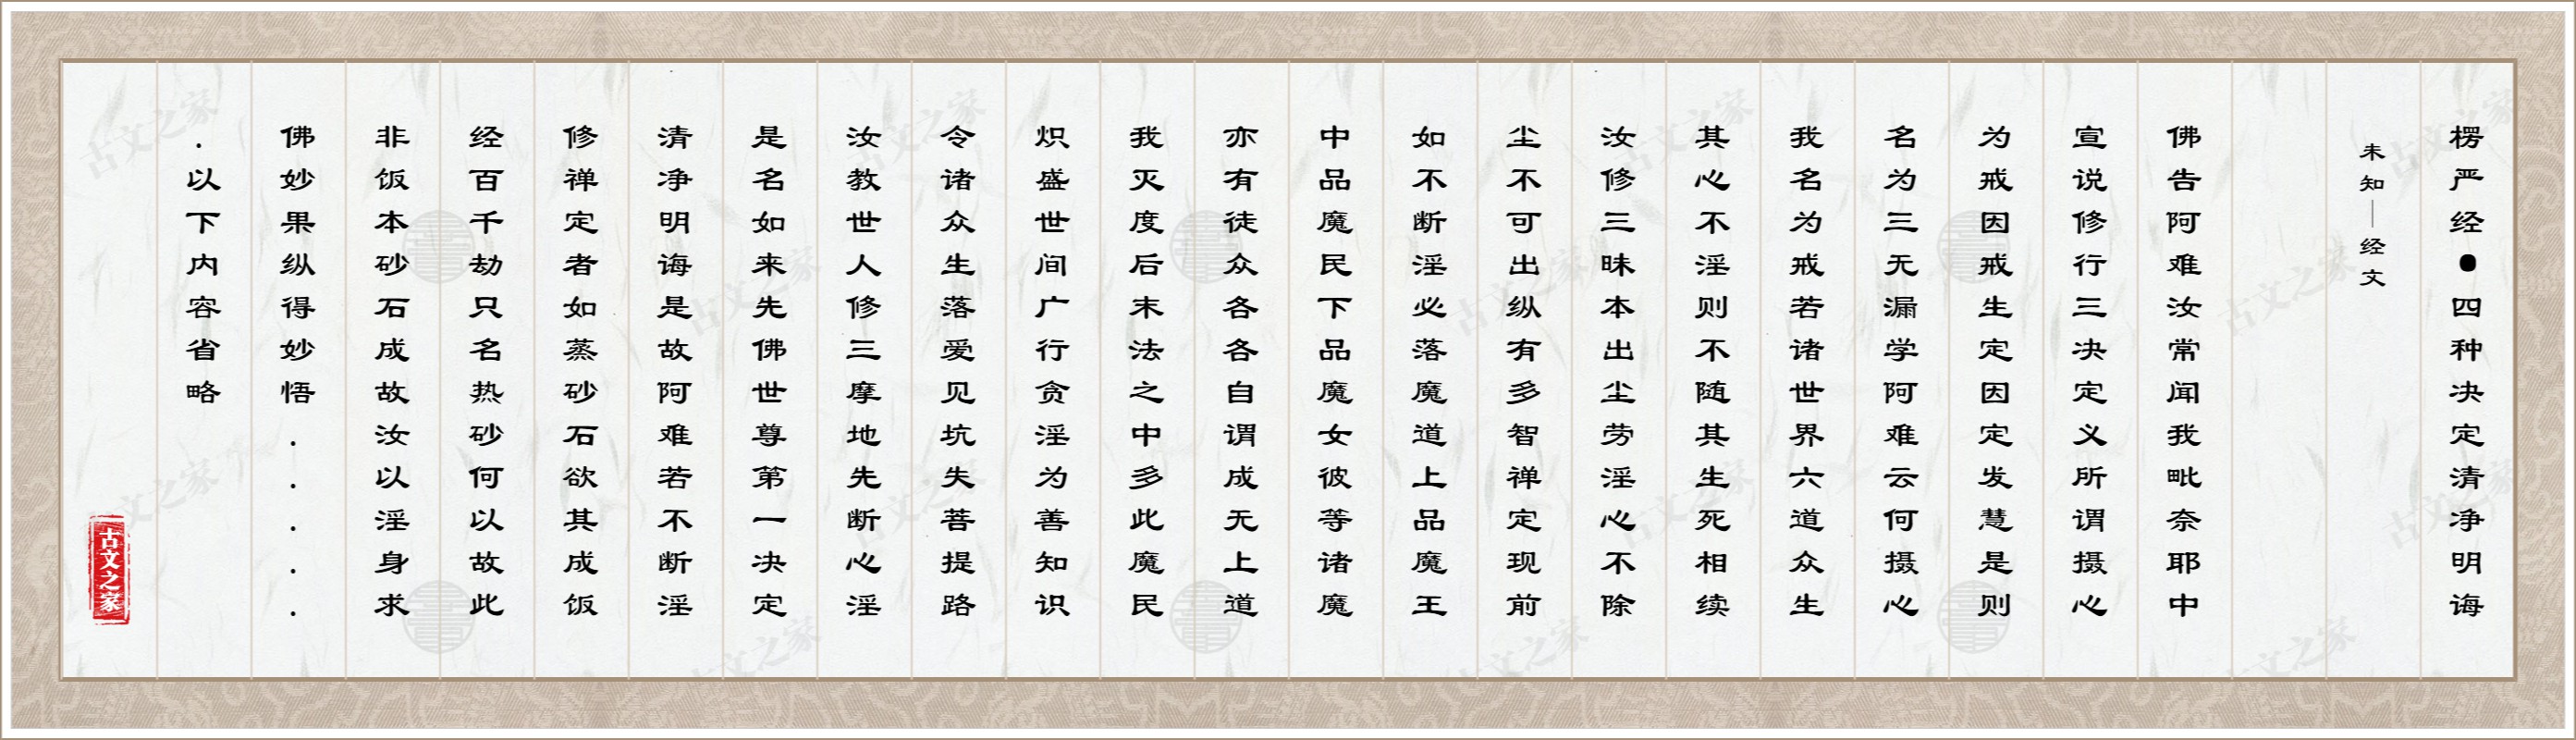 楞严经●四种决定清净明诲
未知—经文
佛告阿难汝常闻我毗奈耶中
宣说修行三决定义所谓摄心
为戒因戒生定因定发慧是则
名为三无漏学阿难云何摄心
我名为戒若诸世界六道众生
其心不淫则不随其生死相续
汝修三昧本出尘劳淫心不除
尘不可出纵有多智禅定现前
如不断淫必落魔道上品魔王
中品魔民下品魔女彼等诸魔
亦有徒众各各自谓成无上道
我灭度后末法之中多此魔民
炽盛世间广行贪淫为善知识
令诸众生落爱见坑失菩提路
汝教世人修三摩地先断心淫
是名如来先佛世尊第一决定
清净明诲是故阿难若不断淫
修禅定者如蒸砂石欲其成饭
经百千劫只名热砂何以故此
非饭本砂石成故汝以淫身求
佛妙果纵得妙悟.....
.以下内容省略
古文之家